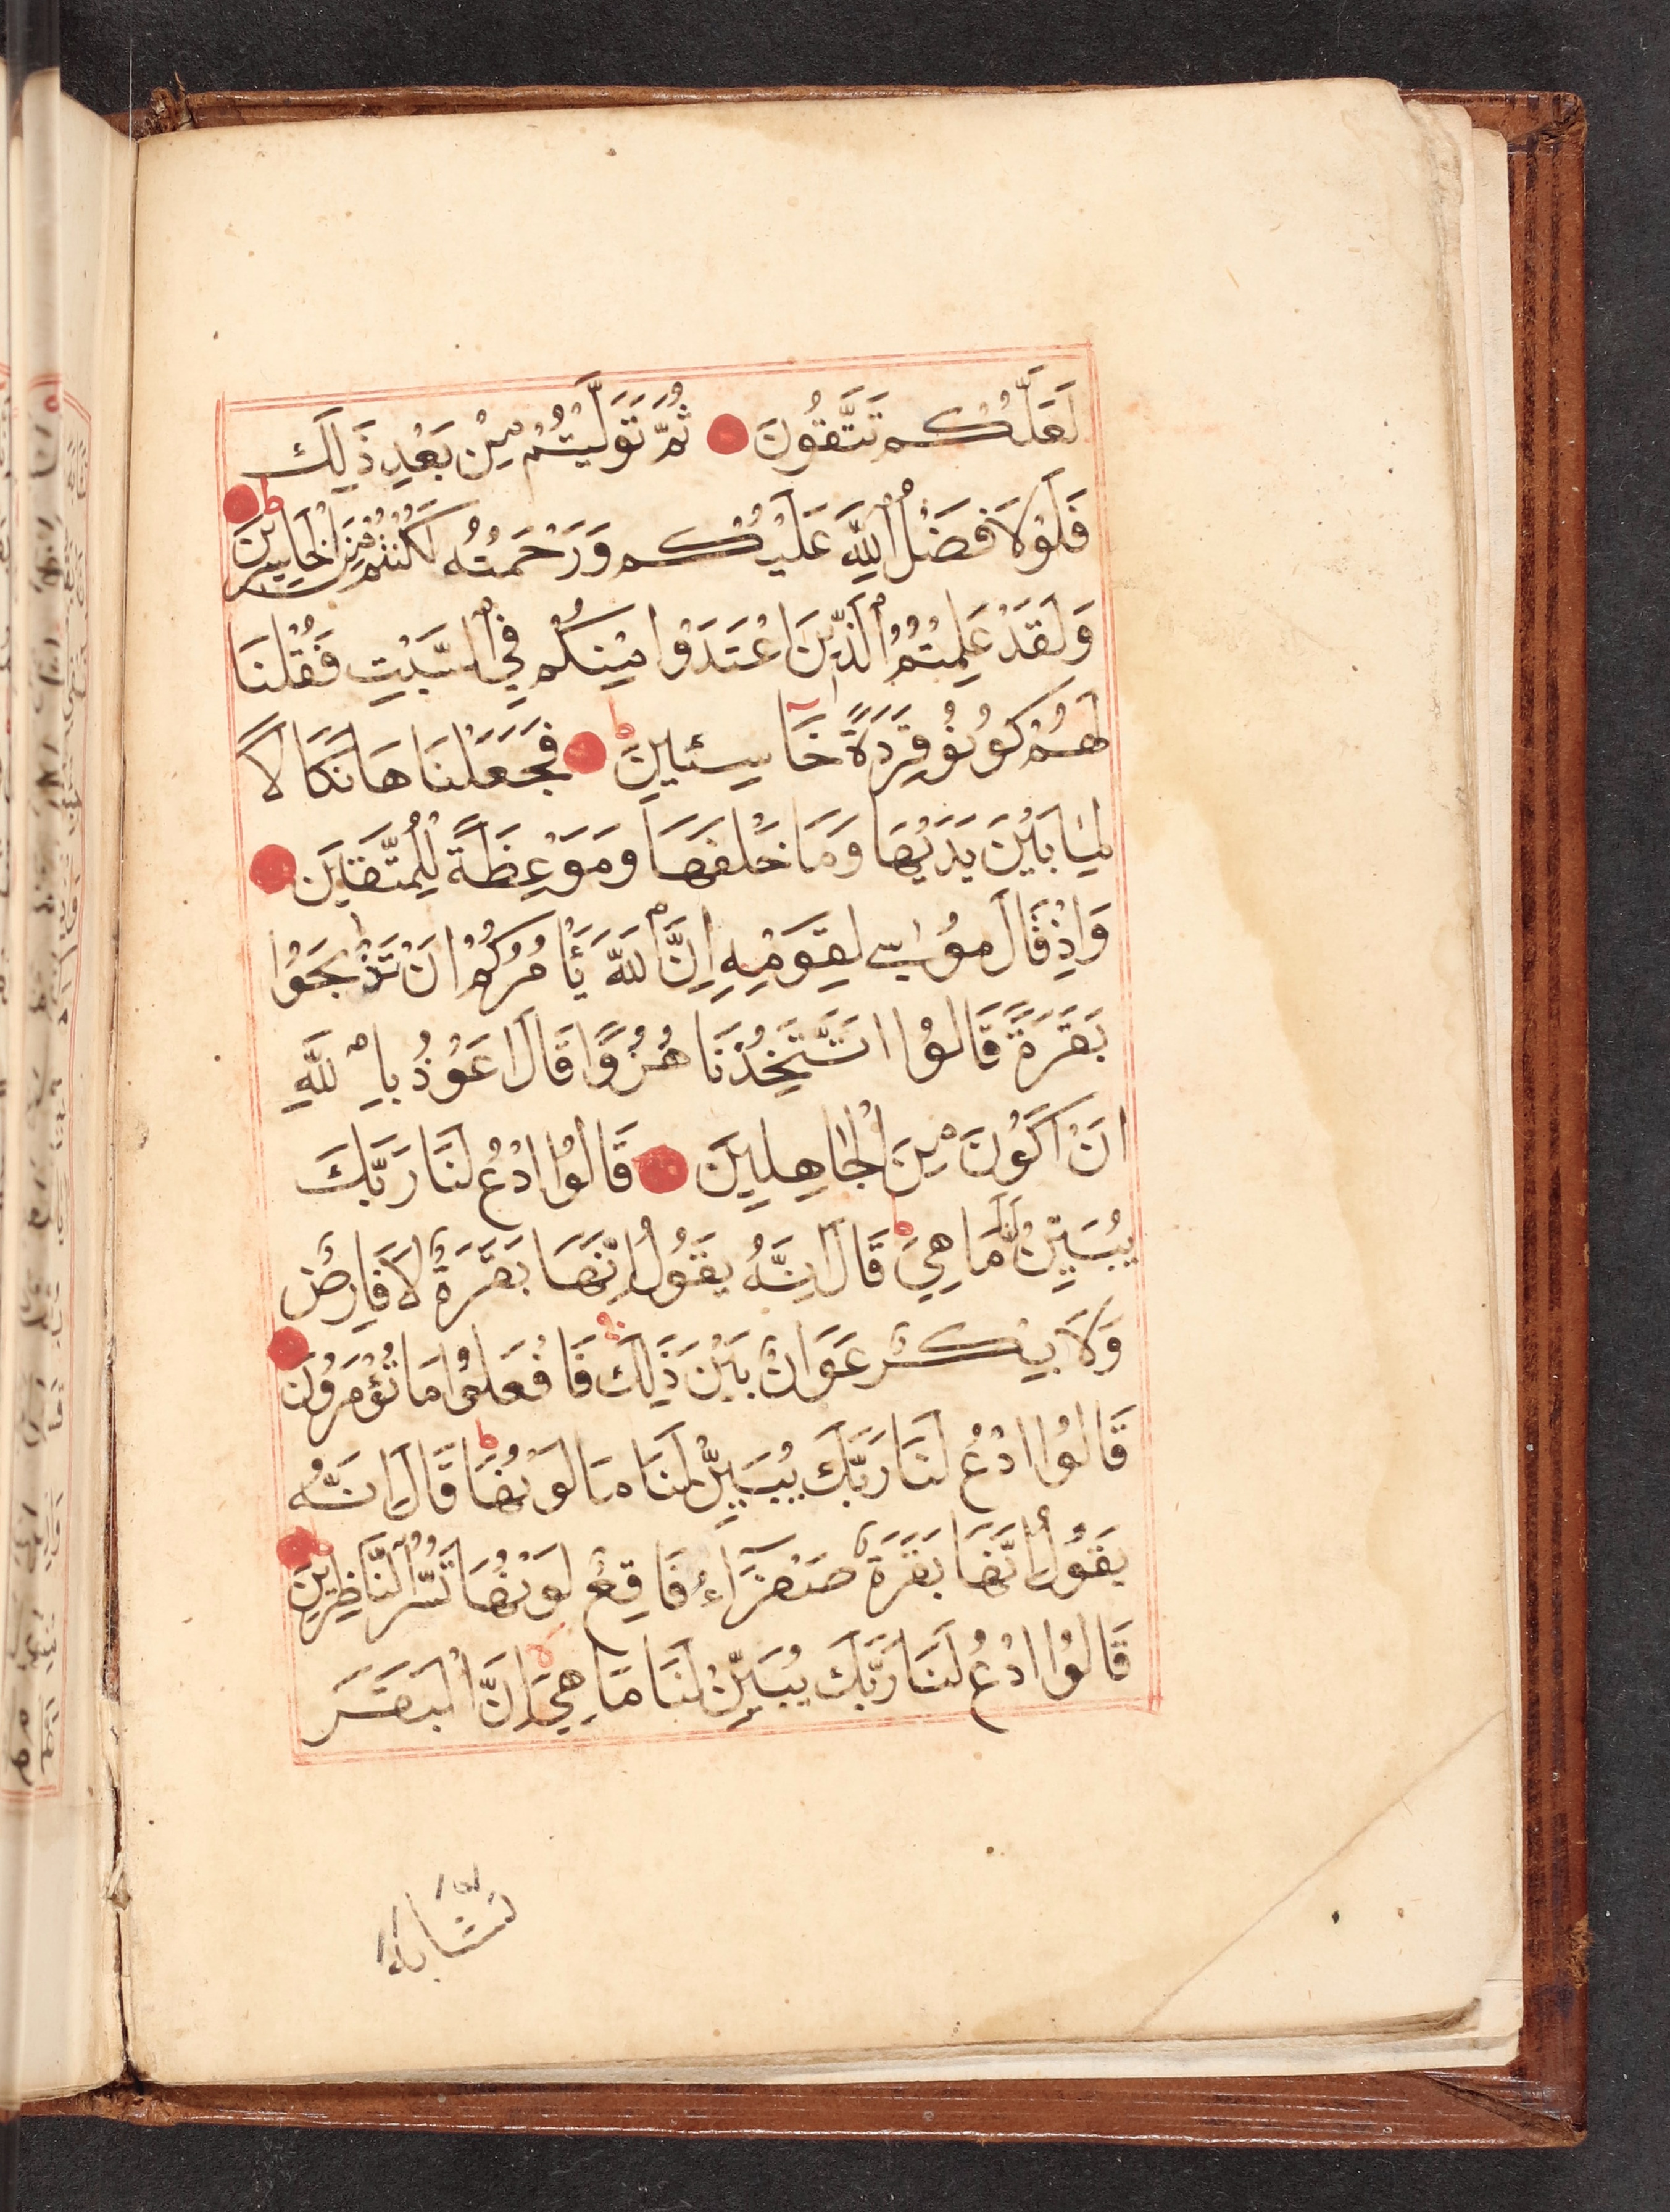 لَعَلَّكُمْ تَتَّقُونَ ثُمَّ تَوَلَّيْتُمْ مِنْ بَعْدِ ذَلِكَ
فَلَوْلَا فَضْلُ اللَّهِ عَلَيْكُمْ وَرَحْمَتُهُ لَكُنْتُمْ مِنَ الْخَاسِرِينَ
وَلَقَدْ عَلِمْتُمُ الَّذِينَ اعْتَدَوْا مِنْكُمْ فِي السَّبْتِ فَقُلْنَا
لَهُمْ كُونُو قِرَدَةً خَاسِئِينَ فَجَعَلْنَاهَا نَكَالًا
لِمَا بَيْنَ يَدَيْهَا وَمَا خَلْفَهَا وَمَوْعِظَةً لِلْمُتَّقِينَ
وَاِذْ قَالَ مُوسَى لِقَوْمِهِ اِنَّ اللَّهَ يَأْمُرُكُمْ اَنْ تَذْبَحُوا
بَقَرَةً قَالُوا اتَتَّخِذُنَا هُزُوًا قَالَ اَعُوذُ بِاللَّهِ
اَنْ اَكُونَ مِنَ الْجَاهِلِينَ قَالُوا ادْعُ لَنَا رَبَّكَ
يُبَيِّنْ لَّنَا مَا هِيَ قَالَ اِنَّهُ يَقُولُ اِنَّهَا بَقَرَةٌ لَا فَارِضٌ
وَلَا بِكْرٌ عَوَانٌ بَيْنَ ذَلِكَ فَافْعَلُوا مَا تُؤْمَرُونَ
قَالُوا ادْعُ لَنَا رَبَّكَ يُبَيِّنْ لَنَا مَا لَوْنُهَا قَالَ اِنَّهُ
يَقُولُ اِنَّهَا بَقَرَةٌ صَفْرَآءُ فَاقِعٌ لَوْنُهَا تَسُرُّ النَّاظِرِينَ
قَالُوا ادْعُ لَنَا رَبَّكَ يُبَيِّنْ لَنَا مَا هِيَ اِنَّ الْبَقَرَ
تَشَابَهَ